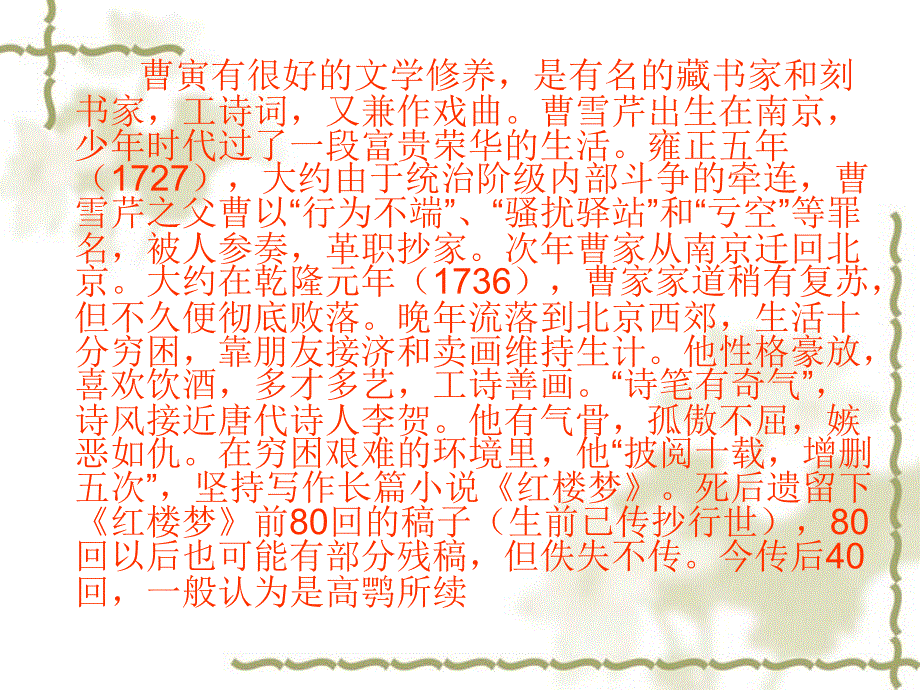 曹寅有很好的文学修养，是有名的藏书家和刻
书家，工诗词，又兼作戏曲。曹雪芹出生在南京，
少年时代过了一段富贵荣华的生活。雍正五年
（1727），大约由于统治阶级内部斗争的牵连，曹
雪芹之父曹以“行为不端”、“骚扰驿站”和“亏空”等罪
名，被人参奏，革职抄家。次年曹家从南京迁回北
京。大约在乾隆元年（1736），曹家家道稍有复苏，
但不久便彻底败落。晚年流落到北京西郊，生活十
分穷困，靠朋友接济和卖画维持生计。他性格豪放，
喜欢饮酒，多才多艺，工诗善画。“诗笔有奇气”，
诗风接近唐代诗人李贺。他有气骨，孤傲不屈，嫉
恶如仇。在穷困艰难的环境里，他“披阅十载，增删
五次”，坚持写作长篇小说《红楼梦》。死后遗留下
《红楼梦》前80回的稿子（生前已传抄行世），80
回以后也可能有部分残稿，但佚失不传。今传后40
回，一般认为是高鹗所续